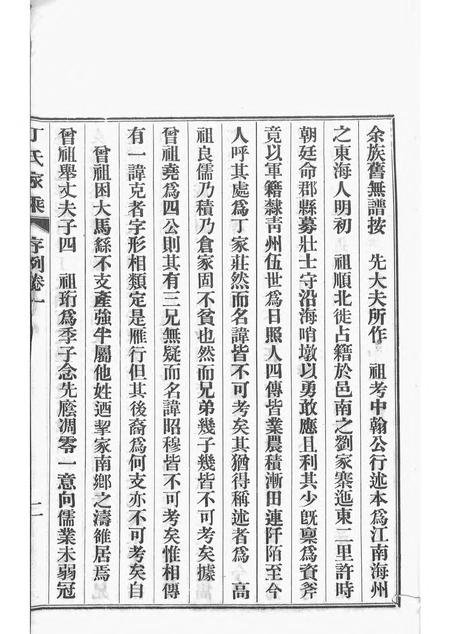 余族舊無譜按　先大夫所作　祖考中翰公行述本為江南海州
之東海人明初　祖順北徙占籍於邑南之劉家寨迤東二里許時
朝廷命郡縣募壯士守沿海哨墩以勇敢應且利其少既稟為資斧
竟以軍籍隸靑州伍世為日照人四傳皆業農積漸田連阡陌至今
人呼其處為丁家莊然而名諱皆不可考矣其猶得稱述者為　高
祖良儒乃積乃倉家固不貧也然而兄弟幾子幾皆不可考矣據
曾祖堯為四公則其有三兄無疑而名諱昭穆皆不可考矣惟相傳
有一諱克者字形相類定是雁行但其後裔為何支亦不可考矣自
曾祖困大馬繇不支產強半屬他姓迺挈家南鄉之濤雒居焉
曾祖舉丈夫子四　祖珩為季子念先廕凋零一意向儒業未弱冠
丁氏家乘　序例卷一　二